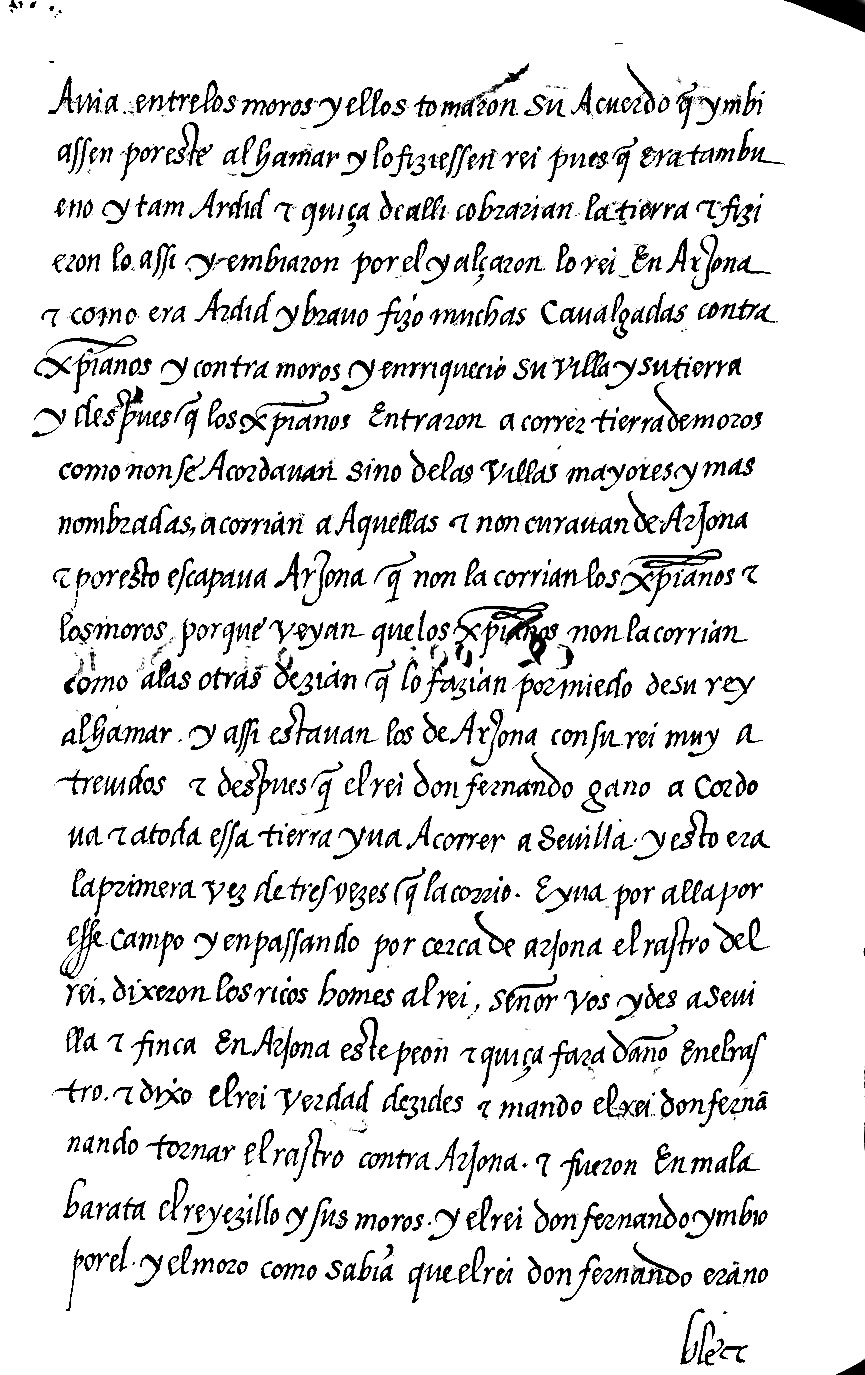 Auia entre los moros y ellos tomaron su Acuerdo q̃ ymbi
assen por este alhamar y lo fiziessen rei pues q̃ era tam bu
eno y tam Ardid τ quiça de alli cobrarian la tierra τ fizi
eron lo assi y embiaron por el y alçaron lo rei En Arjona
τ como era Ardid y brauo fizo muchas Caualgadas contra
xp̃ianos y contra moros y enrriquecio su villa y su tierra
y despues q̃ los xp̃ianos Entraron a correr tierra de moros
como non se Acordauan sino de las villas mayores y mas
nombradas, acorrian a Aquellas τ non curauan de Arjona
τ por esto escapaua Arjona q̃ non la corrian los xp̃ianos τ
los moros porque veyan que los xp̃ianos non la corrian
como alas otras dezian q̃ lo fazian por miedo de su rey
alhamar. y assi estauan los de Arjona con su rei muy a
treuidos τ despues q̃ el rei don fernando gano a Cordo
ua τ a toda essa tierra yua Acorrer a Seuilla. y esto era
la primera vez de tres vezes q̃ la corrio. E yua por alla por
esse campo y en passando por cerca de arjona el rastro del
rei, dixeron los ricos homes al rei, señor vos ydes a Seui
lla τ finca En Arjona este peon τ quiça fara daño En el ras
tro. τ dixo el rei verdad dezides τ mando el rei don fernã
nando tornar el rastro contra Arjona. τ fueron En mala
barata el reyezillo y sus moros. y el rei don fernando ymbio
por el. y el moro como sabia que el rei don fernando era no
ble τ